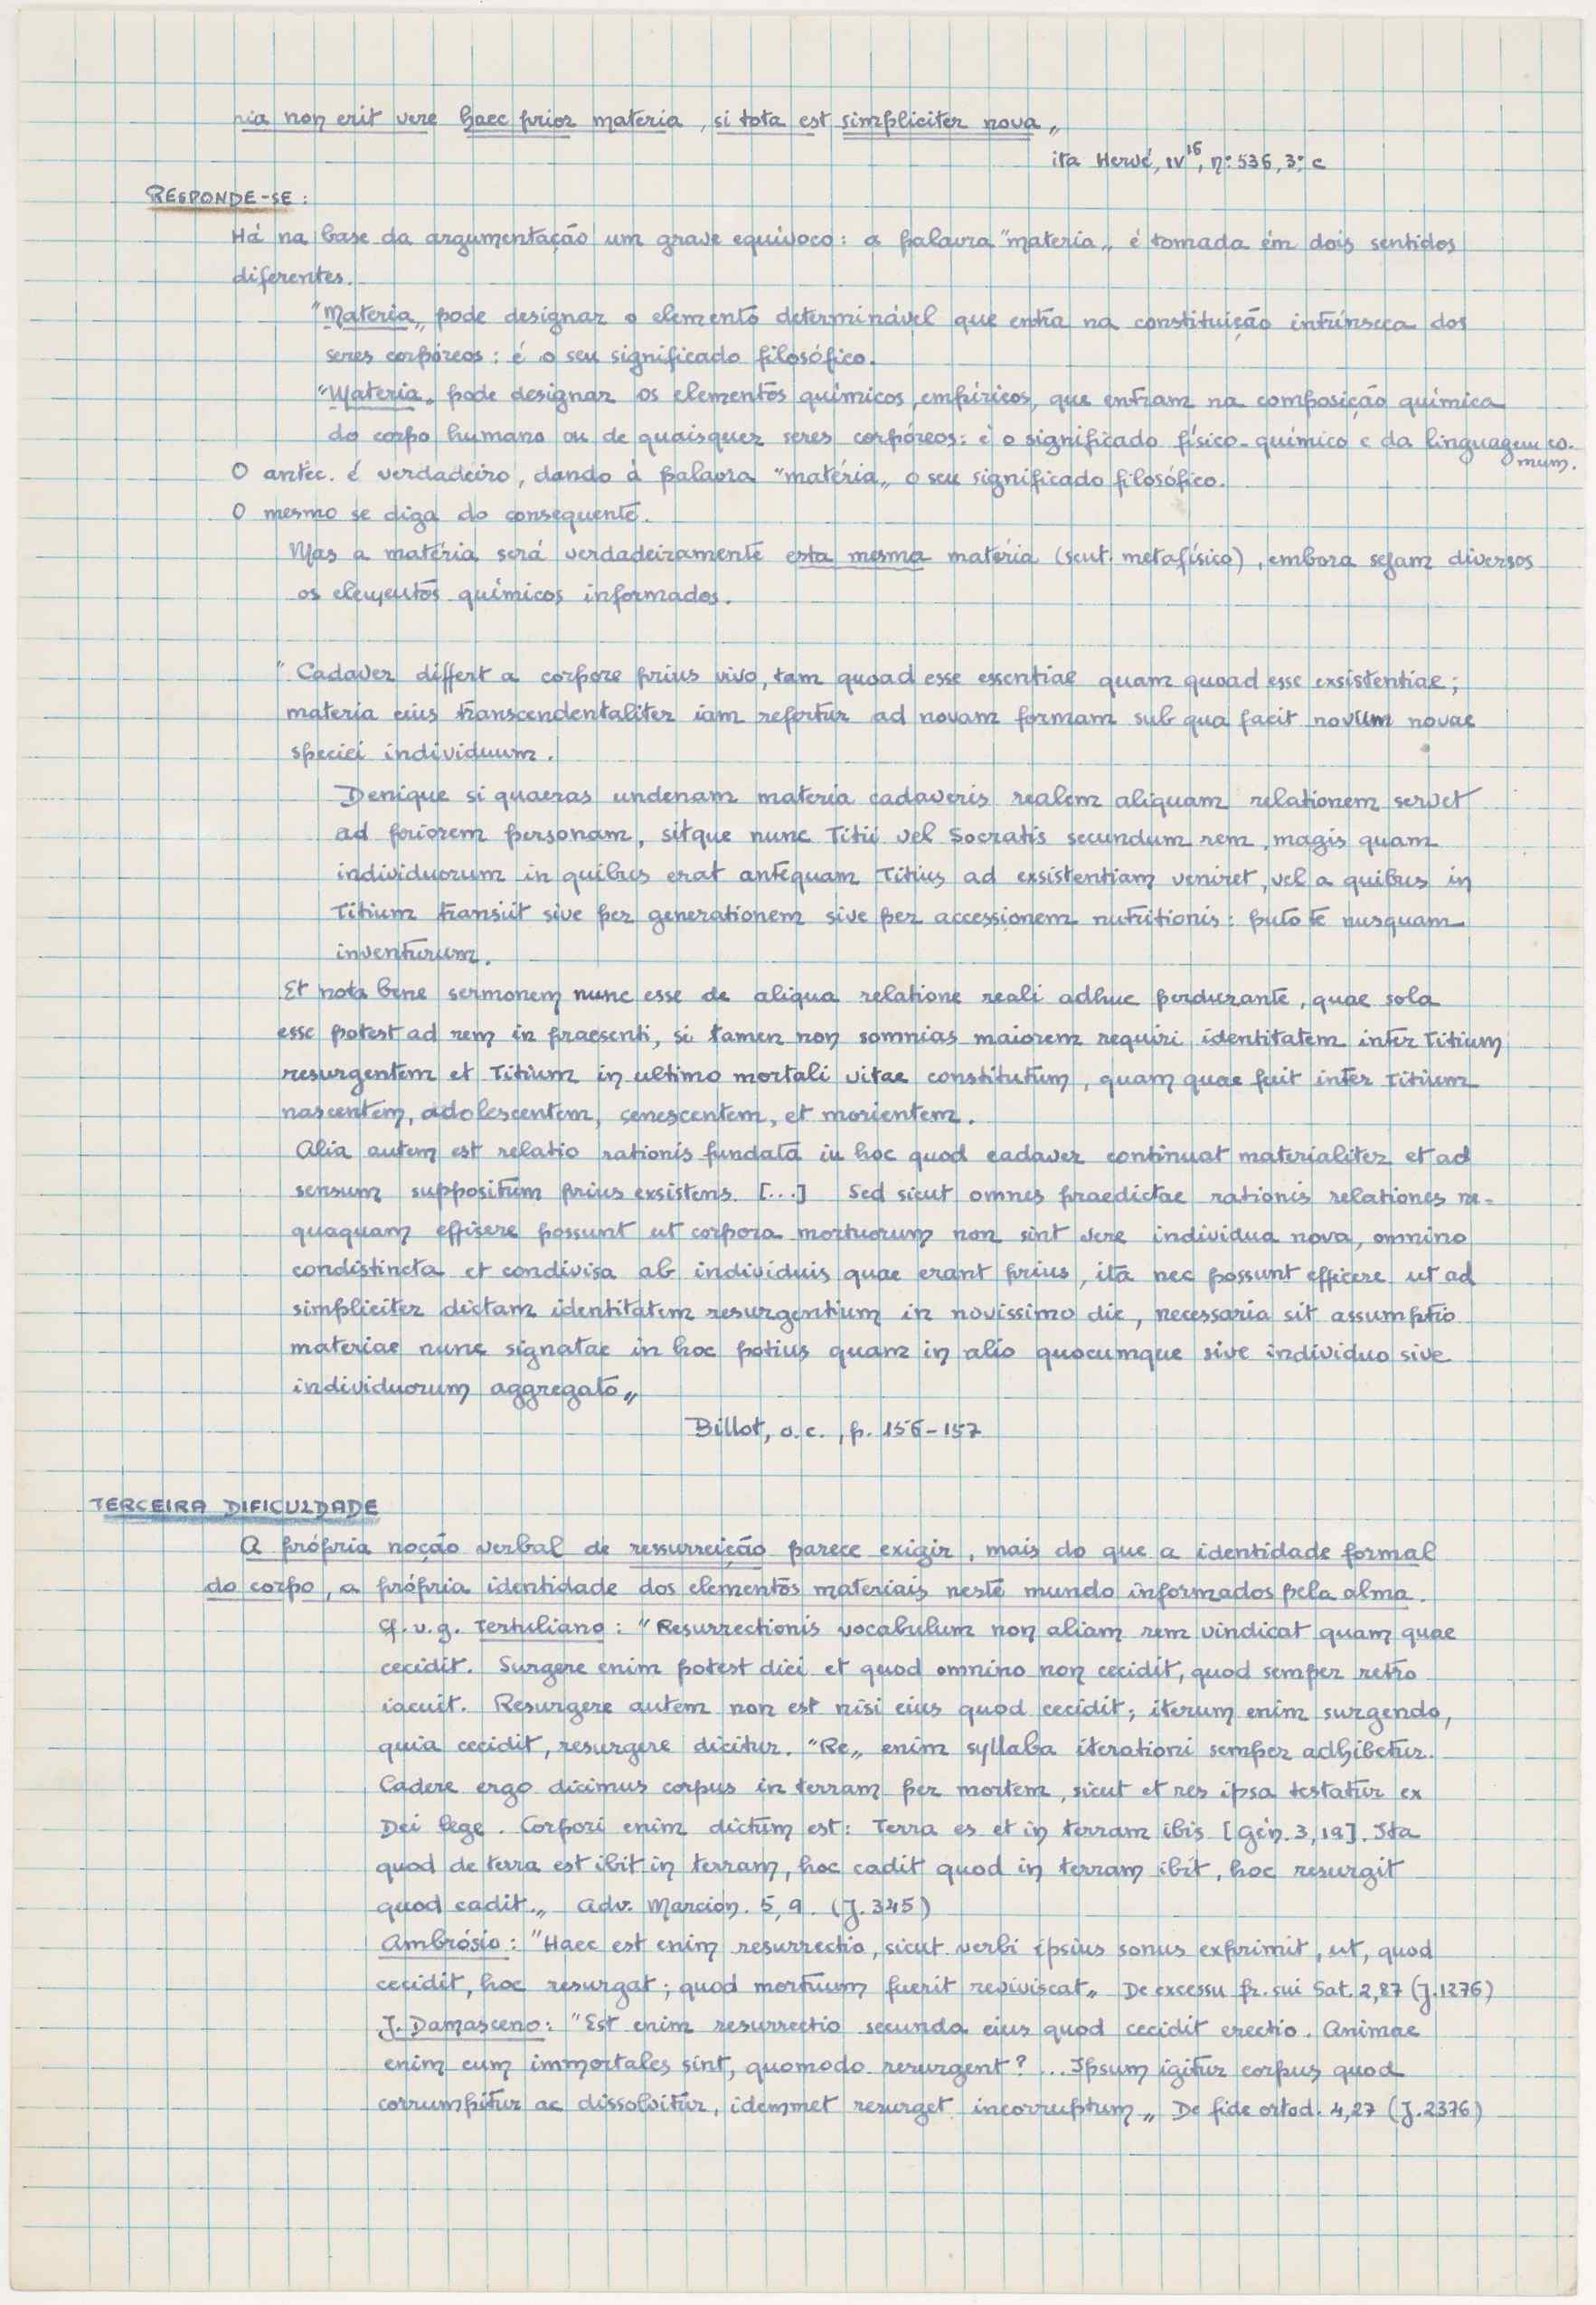 ria non erit vere haec prior materia, si tota est simpliciter nova„
ita Hervé, IV¹⁶, n.º 536, 3.º c
RESPONDE-SE:
Há na base da argumentação um grave equívoco: a palavra "materia„ é tomada em dois sentidos
diferentes.
"Materia„ pode designar o elemento determinável que entra na constituição intrínseca dos
seres corpóreos: é o seu significado filosófico.
"Materia„ pode designar os elementos químicos, empíricos, que entram na composição química
do corpo humano ou de quaisquer seres corpóreos: é o significado físico-químico e da linguagem co-
mum.
O antec. é verdadeiro, dando à palavra "matéria„ o seu significado filosófico.
O mesmo se diga do consequente.
Mas a matéria será verdadeiramente esta mesma matéria (sent. metafísico), embora sejam diversos
os elementos químicos informados.
"Cadaver differt a corpore prius vivo, tam quoad esse essentiae quam quoad esse exsistentiae;
materia eius transcendentaliter iam refertur ad novam formam sub qua facit novum novae
speciei individuum.
Denique si quaeras undenam materia cadaveris realem aliquam relationem servet
ad priorem personam, sitque nunc Titii vel Socratis secundum rem, magis quam
individuorum in quibus erat antequam Titius ad exsistentiam veniret, vel a quibus in
Titium transiit sive per generationem sive per accessionem nutritionis: puto te nusquam
inventurum.
Et nota bene sermonem nunc esse de aliqua relatione reali adhuc perdurante, quae sola
esse potest ad rem in praesenti, si tamen non somnias maiorem requiri identitatem inter Titium
resurgentem et Titium in ultimo mortali vitae constitutum, quam quae fuit inter Titium
nascentem, adolescentem, senescentem, et morientem.
Alia autem est relatio rationis fundata in hoc quod cadaver continuat materialiter et ad
sensum suppositum prius exsistens. [...] Sed sicut omnes praedictae rationis relationes ne-
quaquam efficere possunt ut corpora mortuorum non sint vere individua nova, omnino
condistincta et condivisa ab individuis quae erant prius, ita nec possunt efficere ut ad
simpliciter dictam identitatem resurgentium in novissimo die, necessaria sit assumptio
materiae nunc signatae in hoc potius quam in alio quocumque sive individuo sive
individuorum aggregato„
Billot, o.c., p. 156-157
TERCEIRA DIFICULDADE
A própria noção verbal de ressurreição parece exigir, mais do que a identidade formal
do corpo, a própria identidade dos elementos materiais neste mundo informados pela alma.
Cf. v.g. Tertuliano: "Resurrectionis vocabulum non aliam rem vindicat quam quae
cecidit. Surgere enim potest dici et quod omnino non cecidit, quod semper retro
iacuit. Resurgere autem non est nisi eius quod cecidit; iterum enim surgendo,
quia cecidit, resurgere dicitur. "Re„ enim syllaba iterationi semper adhibetur.
Cadere ergo dicimus corpus in terram per mortem, sicut et res ipsa testatur ex
Dei lege. Corpori enim dictum est: Terra es et in terram ibis [Gén. 3,19]. Ita
quod de terra est ibit in terram, hoc cadit quod in terram ibit, hoc resurgit
quod cadit.„ Adv. Marcion. 5, 9. (J. 345)
Ambrósio: "Haec est enim resurrectio, sicut verbi ipsius sonus exprimit, ut, quod
cecidit, hoc resurgat; quod mortuum fuerit reviviscat„ De excessu fr. sui Sat. 2,87 (J.1276)
J. Damasceno: "Est enim resurrectio secunda eius quod cecidit erectio. Animae
enim cum immortales sint, quomodo resurgent? ...Ipsum igitur corpus quod
corrumpitur ac dissolvitur, idemmet resurget incorruptum„ De fide ortod. 4,27 (J.2376)